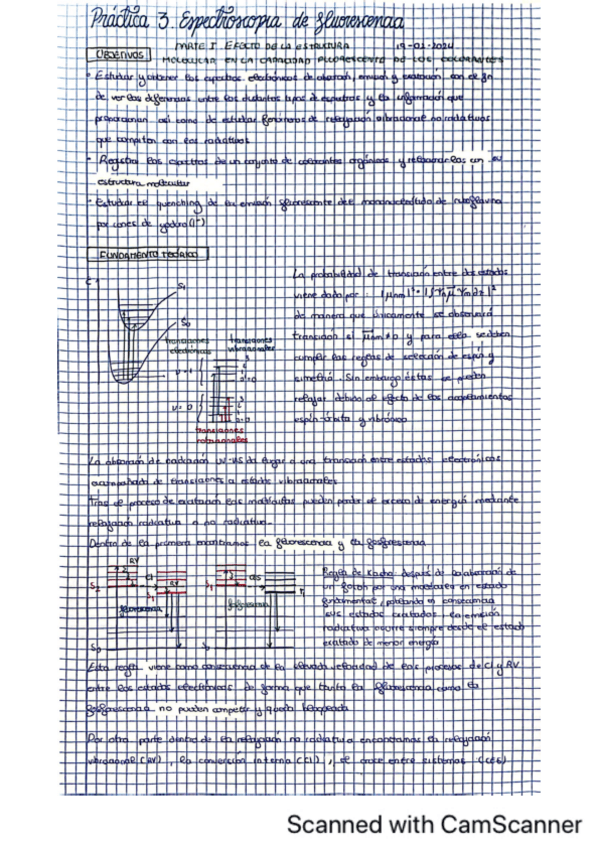 Práctica 3. Espectroscopia de fluorescencia
PARTE I. EFECTO DE LA ESTRUCTURA 19-02-2024
OBJETIVOS MOLECULAR EN LA CAPACIDAD FLUORESCENTE DE LOS COLORANTES
• Estudiar y obtener los espectros electrónicos de absorción, emisión y excitación con el fin
de ver las diferencias entre los distintos tipos de espectros y la información que
proporcionan así como de estudiar fenómenos de relajación vibracional no radiativos
que compiten con los radiativos
• Registrar los espectros de un conjunto de colorantes orgánicos y relacionarlos con su
estructura molecular
• Estudiar el quenching de la emisión fluorescente del mononucleótido de riboflavina
por iones de yoduro (I⁻)
FUNDAMENTO TEÓRICO
E
S₁
S₀
transiciones
electrónicas
transiciones
vibracionales
v=1
v=0
transiciones
rotacionales
La probabilidad de transición entre dos estados
viene dada por:
de manera que únicamente se observará
transición si y para ello deben
cumplir las reglas de selección de espín y
simetría. Sin embargo éstas se pueden
relajar debido al efecto de los acoplamientos
espín-órbita y vibrónico
La absorción de radiación UV-VIS da lugar a una transición entre estados electrónicos
acompañada de transiciones a estados vibracionales
Tras el proceso de excitación las moléculas pueden perder el exceso de energía mediante
relajación radiativa o no radiativa.
Dentro de la primera encontramos la fluorescencia y la fosforescencia
RV
S₂
CI
RV
S₁
fluorescencia
S₀
S₁
CIS
T₁
fosforescencia
S₀
Regla de Kasha: después de la absorción de
un fotón por una molécula en estado
fundamental, poblando en consecuencia
sus estados excitados la emisión
radiativa ocurre siempre desde el estado
excitado de menor energía
Esta regla viene como consecuencia de la elevada velocidad de los procesos de CI y RV
entre los estados electrónicos de forma que tanto la fluorescencia como la
fosforescencia no pueden competir y queda
Por otra parte dentro de la relajación no radiativa encontramos la relajación
vibracional (RV), la conversión interna (CI), el cruce entre sistemas (CES)
Scanned with CamScanner